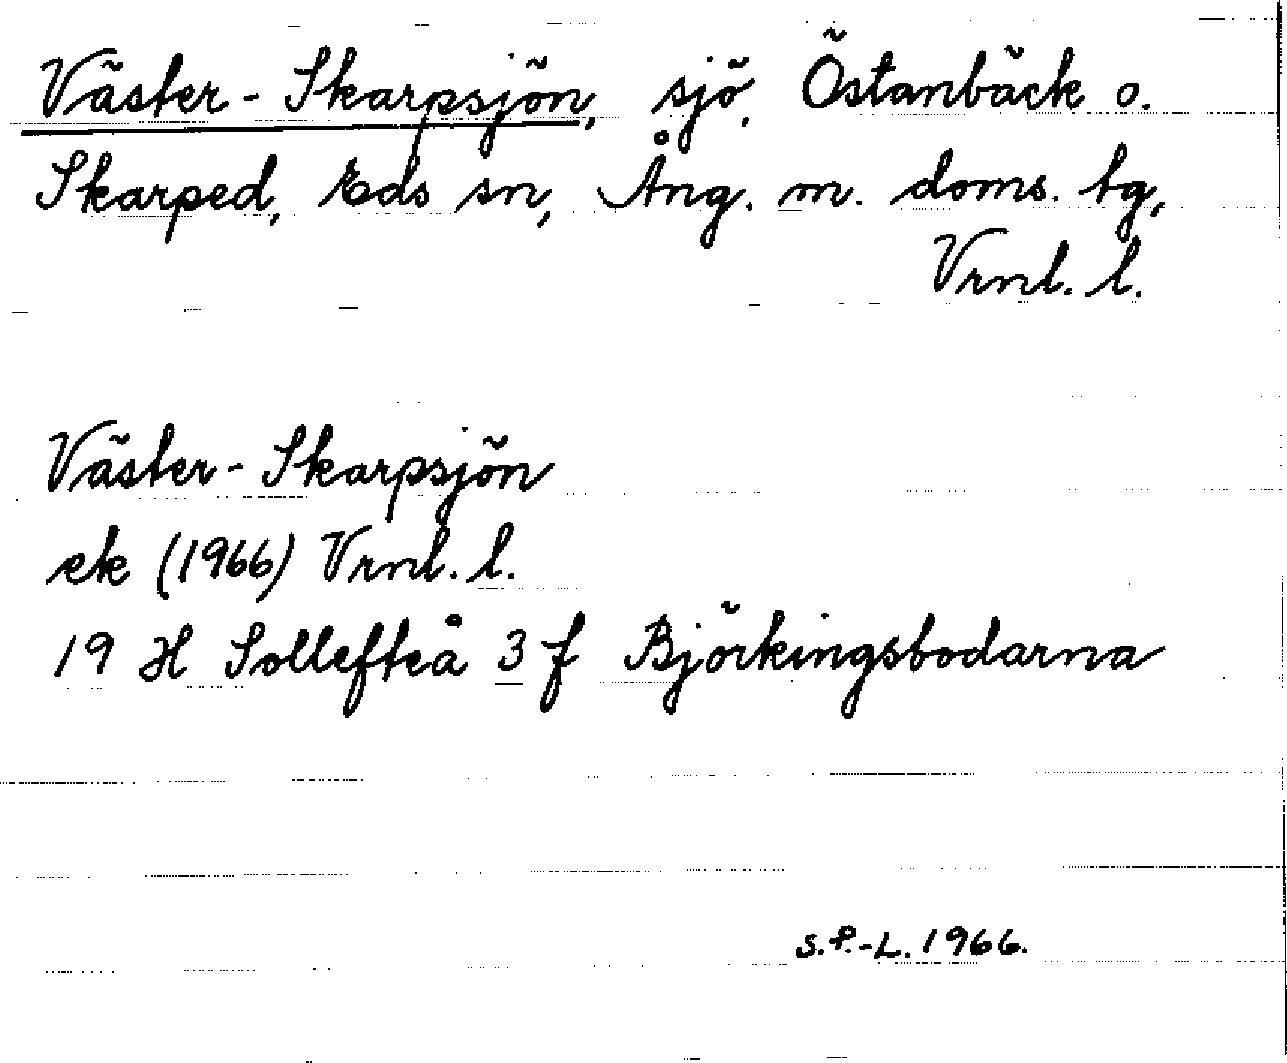 Väster-Skarpsjön, sjö, Östanbäck o.
Skarped, Eds sn, Ång. m. doms. tg,
Vrnl. l.
Väster-Skarpsjön
ek (1966) Vrnl. l.
19 H Sollefteå 3 f Björkingsbodarna
S.P.-L. 1966.